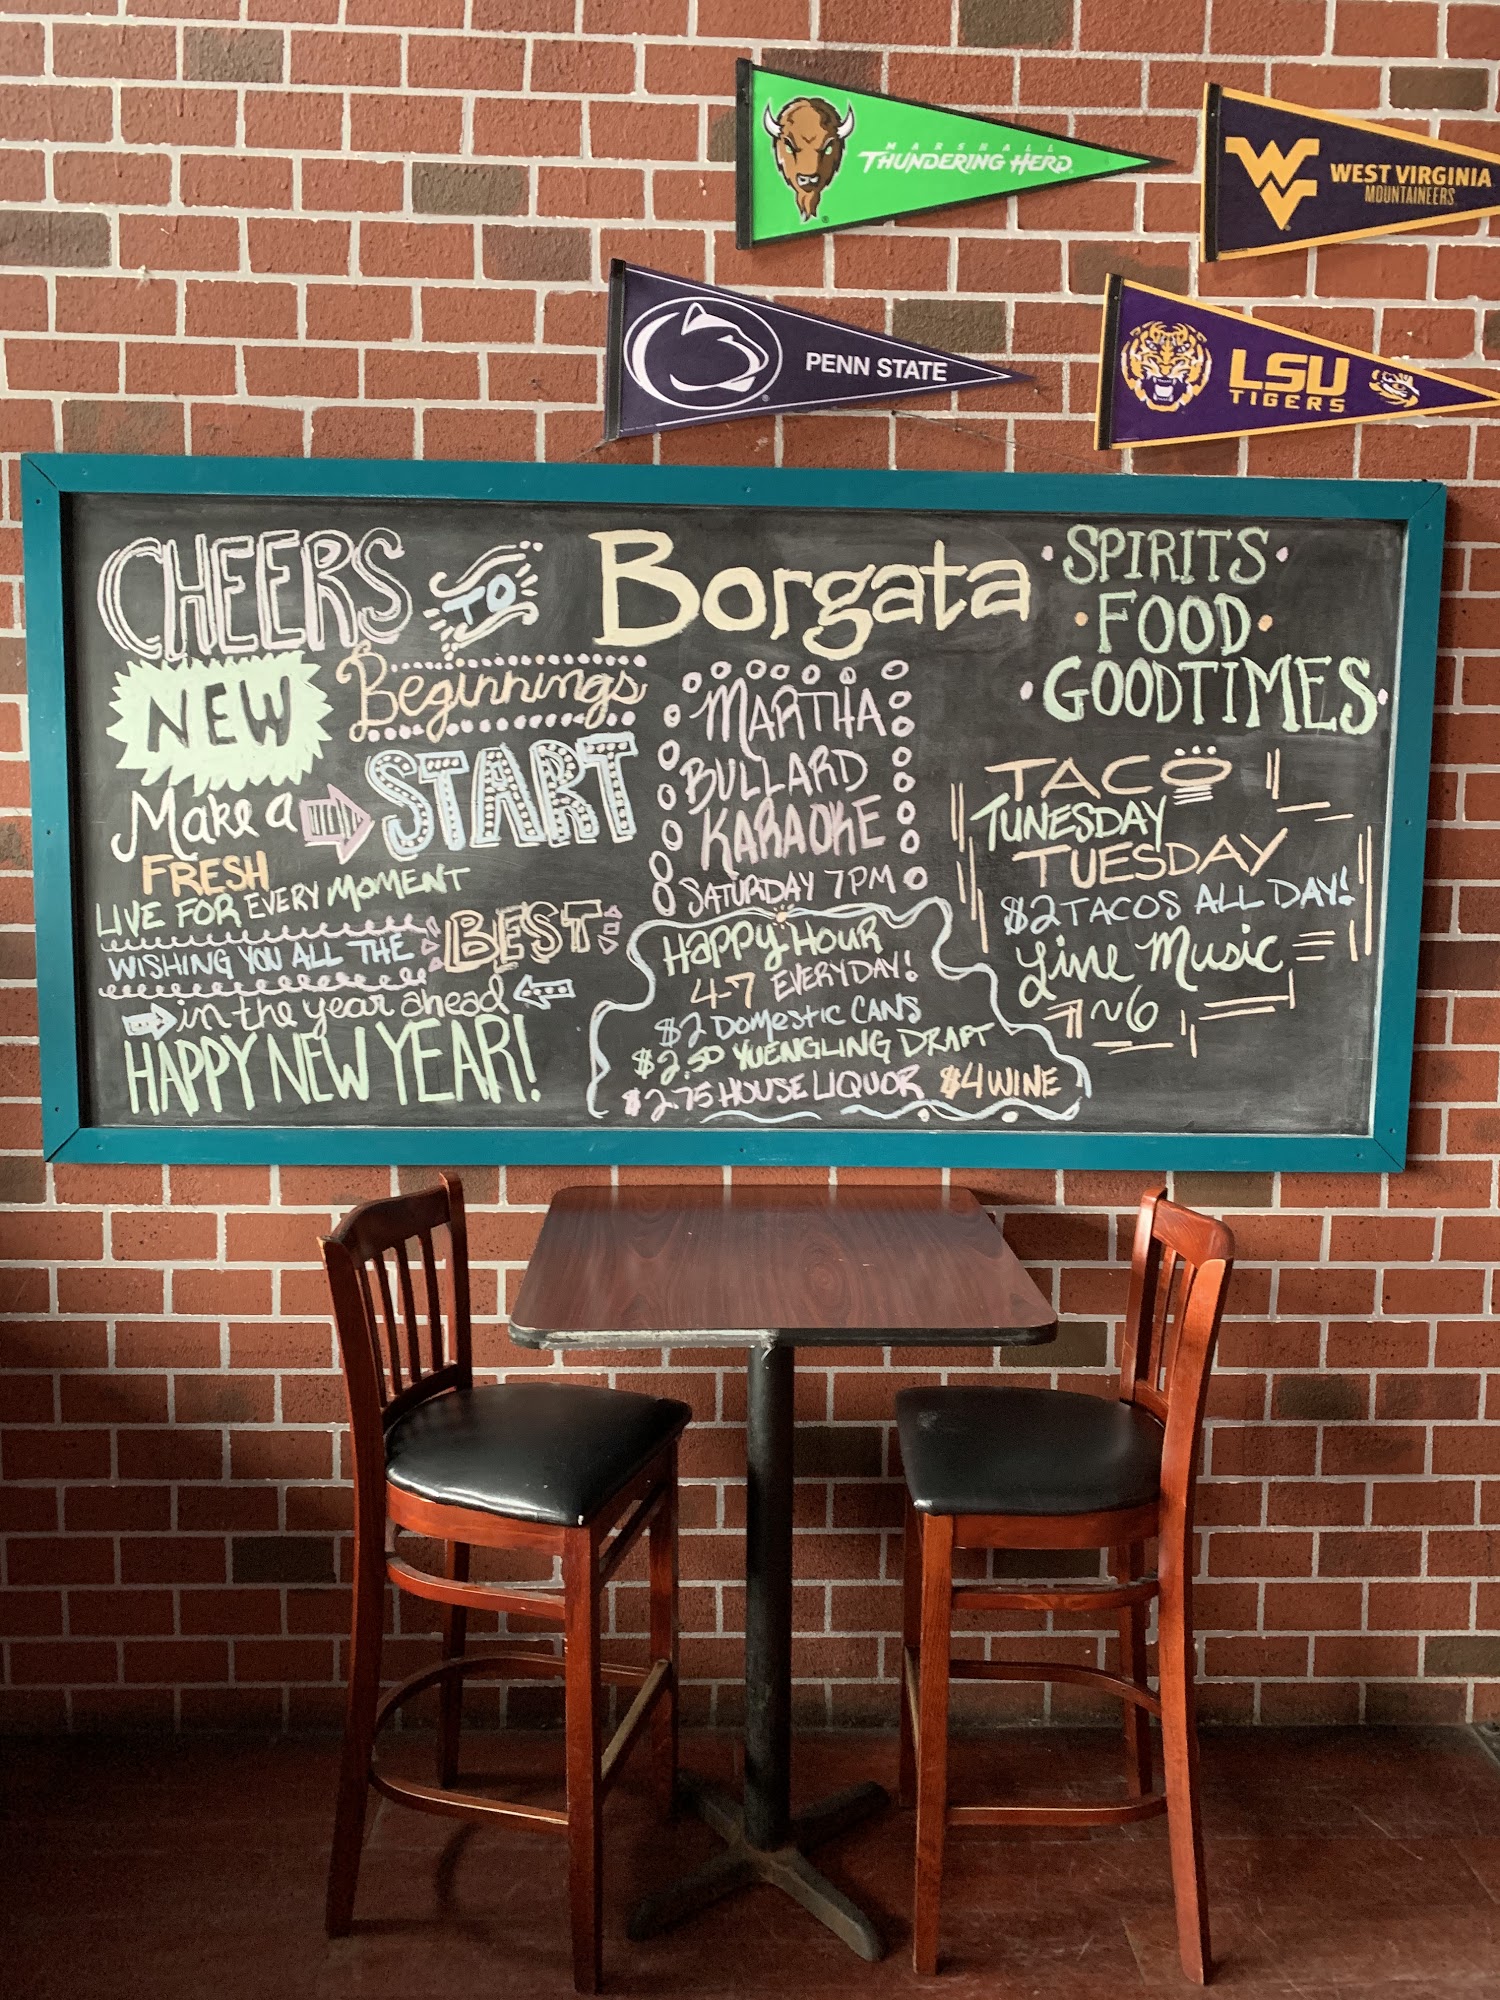 MARSHALL
THUNDERING HERD
WV WEST VIRGINIA
MOUNTAINEERS
PENN STATE
LSU
TIGERS
CHEERS TO
NEW Beginnings
Make a START
FRESH
LIVE FOR EVERY MOMENT
WISHING YOU ALL THE BEST
in the year ahead
HAPPY NEW YEAR!
Borgata
MARTHA
BULLARD
KARAOKE
SATURDAY 7PM
HAPPY HOUR
4-7 EVERYDAY!
$2 DOMESTIC CANS
$2.50 YUENGLING DRAFT
$2.75 HOUSE LIQUOR $4 WINE
SPIRITS
FOOD
GOODTIMES
TACO
TUNESDAY
TUESDAY
$2 TACOS ALL DAY!
Live Music
~6